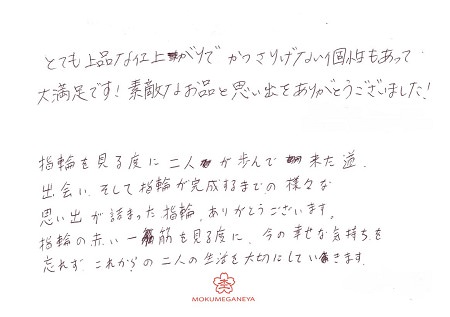 とても上品な仕上がりでかつさりげない個性もあって
大満足です！素敵なお品と思い出をありがとうございました！
指輪を見る度に二人が歩んで来た道、
出会い、そして指輪が完成するまでの様々な
思い出が詰まった指輪、ありがとうございます。
指輪の赤い一筋を見る度に、今の幸せな気持ちを
忘れずこれからの二人の生活を大切にしていきます。
MOKUMEGANEYA